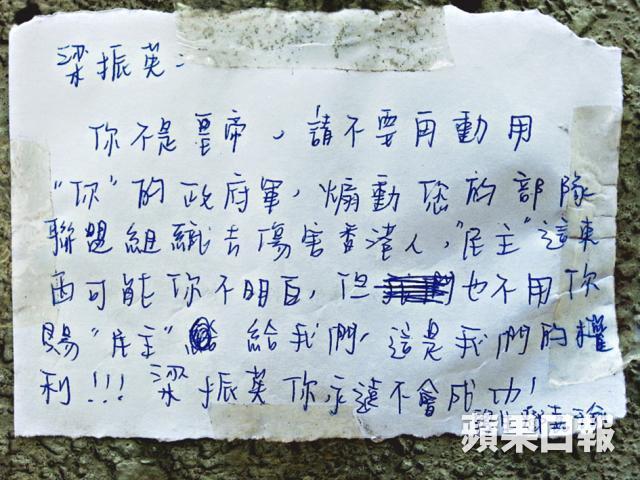 梁振英：
你不是皇帝，請不要再動用
"你"的政府軍，煽動您的部隊
聯盟組織去傷害香港人，"民主"這東
西可能你不明白，但也不用你
賜"民主"給我們，這是我們的權
利!!! 梁振英你永遠不會成功!
蘋果日報